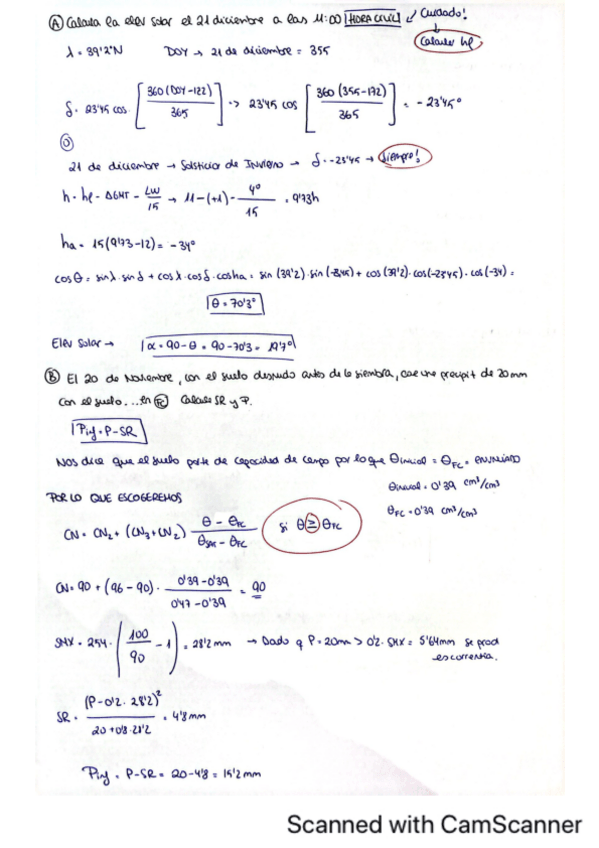 Ⓐ Calcula la elev solar el 21 diciembre a las 11:00 HORA CIVIL ↙ Cuidado!
↓
Calcular hp
λ = 39'2°N DOY → 21 de diciembre = 355
δ = 23'45 cos [360(DOY-122)/365] → 23'45 cos [360(355-172)/365] = -23'45°
Ⓞ
21 de diciembre → Solsticio de INVIERNO → δ = -23'45 → Siempre!
h = hp - ΔGMT - LW/15 → 11-(+1) - 4°/15 = 9'73h
ha = 15(9'73-12) = -34°
cosθ = sinλ · sinδ + cosλ · cosδ · cosha = sin(39'2) · sin(-23'45) + cos(39'2) · cos(-23'45) · cos(-34) =
θ = 70'3°
Elev Solar → α = 90-θ = 90-70'3 = 19'7°
Ⓑ El 20 de Noviembre, con el suelo desnudo antes de la siembra, cae una precipit de 20mm
con el suelo... en FC Calcule SR y P.
Pinf = P-SR
NOS dice que el suelo parte de capacidad de campo por lo que θinicial = θFC = ENUNCIADO
θinicial = 0'39 cm³/cm³
POR LO QUE ESCOGEREMOS
θFC = 0'39 cm³/cm³
CN = CN₂ + (CN₃+CN₂) θ - θFC / θSAT - θFC si θ ≥ θFC
CN = 90 + (96-90) · 0'39-0'39 / 0'47-0'39 = 90
SMX = 254 · (100/90 - 1) = 28'2mm → Dado q P = 20mm > 0'2 · SMX = 5'64mm se prod
escorrentía.
SR = (P-0'2 · 28'2)² / 20+0'8·28'2 = 4'8mm
Pinf = P-SR = 20-4'8 = 15'2mm
Scanned with CamScanner